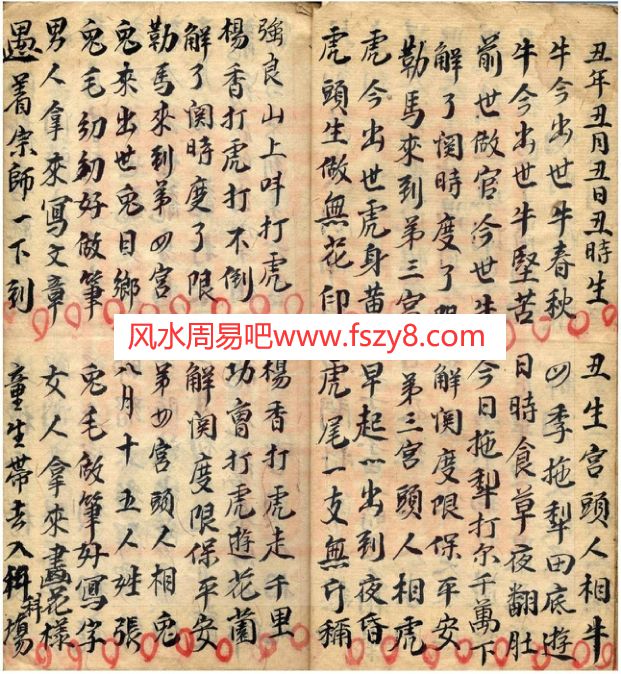 丑年丑月丑日丑時生 丑生宮頭人相牛
牛今出世牛春秋 四季拖犁田底遊
牛今出世牛堅苦 日時食草夜翻肚
前世做官今世牛 今日拖犁打尔千萬下
解了関時度了 解関度限保平安
勒馬來到第三宮 第三宮頭人相虎
虎今出世虎身黃 早起出到夜昏
虎頭生做無花印 虎尾一支無斤稱
強良山上呌打虎 楊香打虎走千里
楊香打虎打不倒 功曹打虎遊花園
解了関時度了限 解関度限保平安
勒馬來到第四宮 第四宮頭人相兔
兔來出世兔目鄉 八月十五人姓張
兔毛幼幼好做筆 兔毛做筆好寫字
男人拿來寫文章 女人拿來畫花樣
遇着宗師一下到 童生帶去入科場
风水周易吧www.fszy8.com